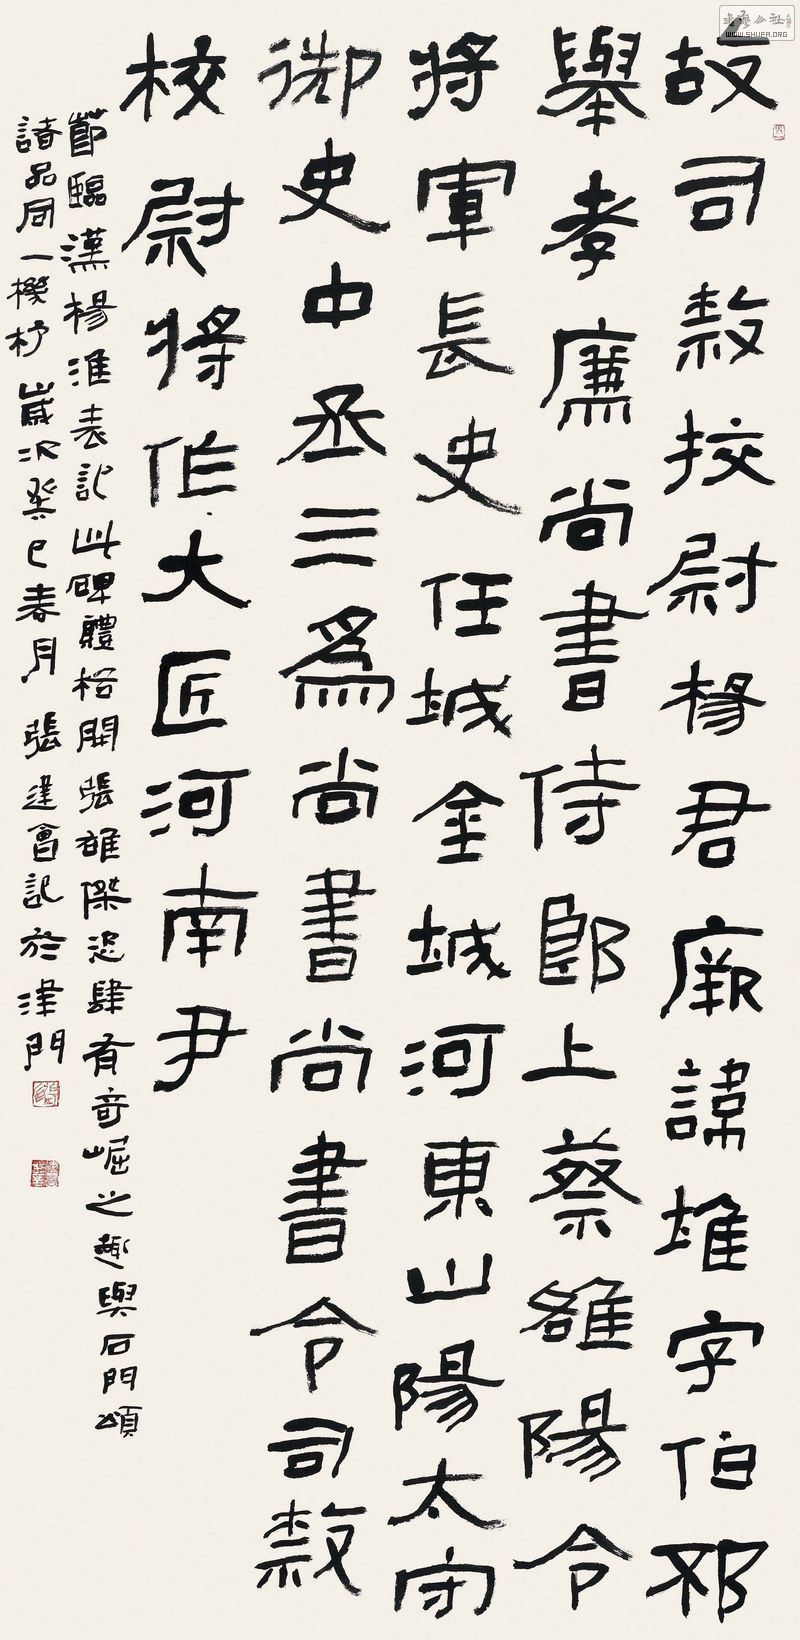 故司隸挍尉楊君厥諱淮字伯邳
舉孝廉尚書侍郎上蔡雒陽令
將軍長史任城金城河東山陽太守
御史中丞三為尚書尚書令司隸
校尉將作大匠河南尹
節臨漢楊淮表記此碑體格開張雄傑恣肆有奇崛之趣與石門頌
諸品同一機杼歲次癸巳春月張建會記於津門
书艺公社
WWW.SHUFA.ORG